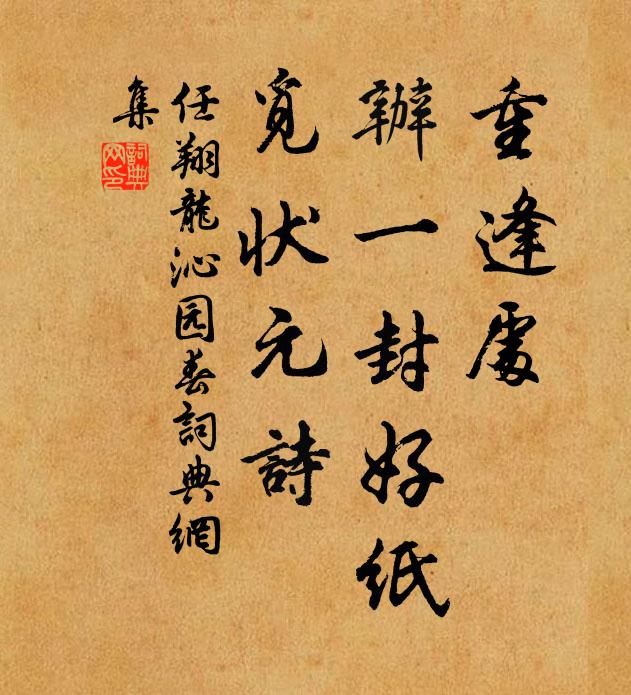 重逢處
辦一封好紙
覓狀元詩
任翔龍沁园春詞典網
集
詞典
网印